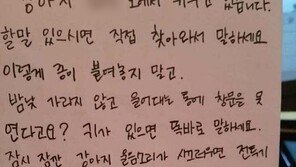 강아지 오메서 키우고 있습니다.
할말 있으시면 직접 찾아와서 말하세요
이렇게 종이 붙여놓지 말고.
밤낮 가리지 않고 울어대는 통에 창문을 못
연다고요? 귀가 있으면 똑바로 말하세요.
잠시 잠깐 강아지 울음소리가 시끄러우면 전투기